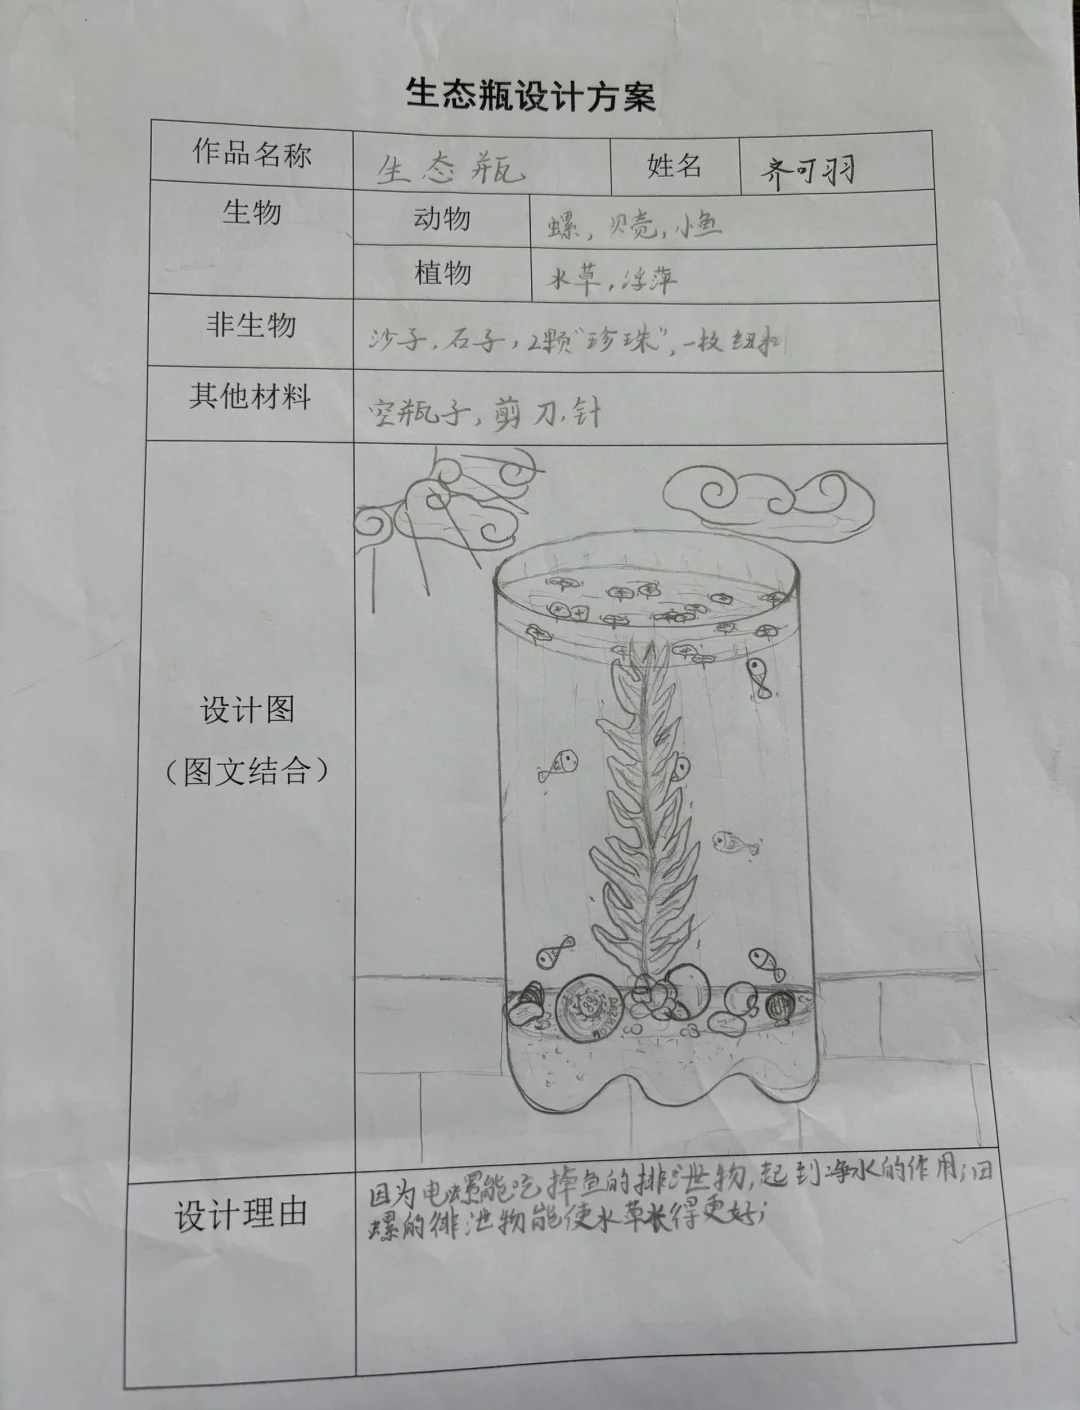 生态瓶设计方案
作品名称 生态瓶 姓名 齐可羽
生物 动物 螺，贝壳，小鱼
植物 水草，浮萍
非生物 沙子，石子，2颗“珍珠”，一枚纽扣
其他材料 空瓶子，剪刀.针
设计图
（图文结合）
设计理由
因为田螺能吃掉鱼的排泄物，起到净水的作用；田
螺的排泄物能使水草长得更好；